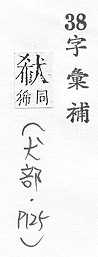 38字彙補
同
(犬部·P125)